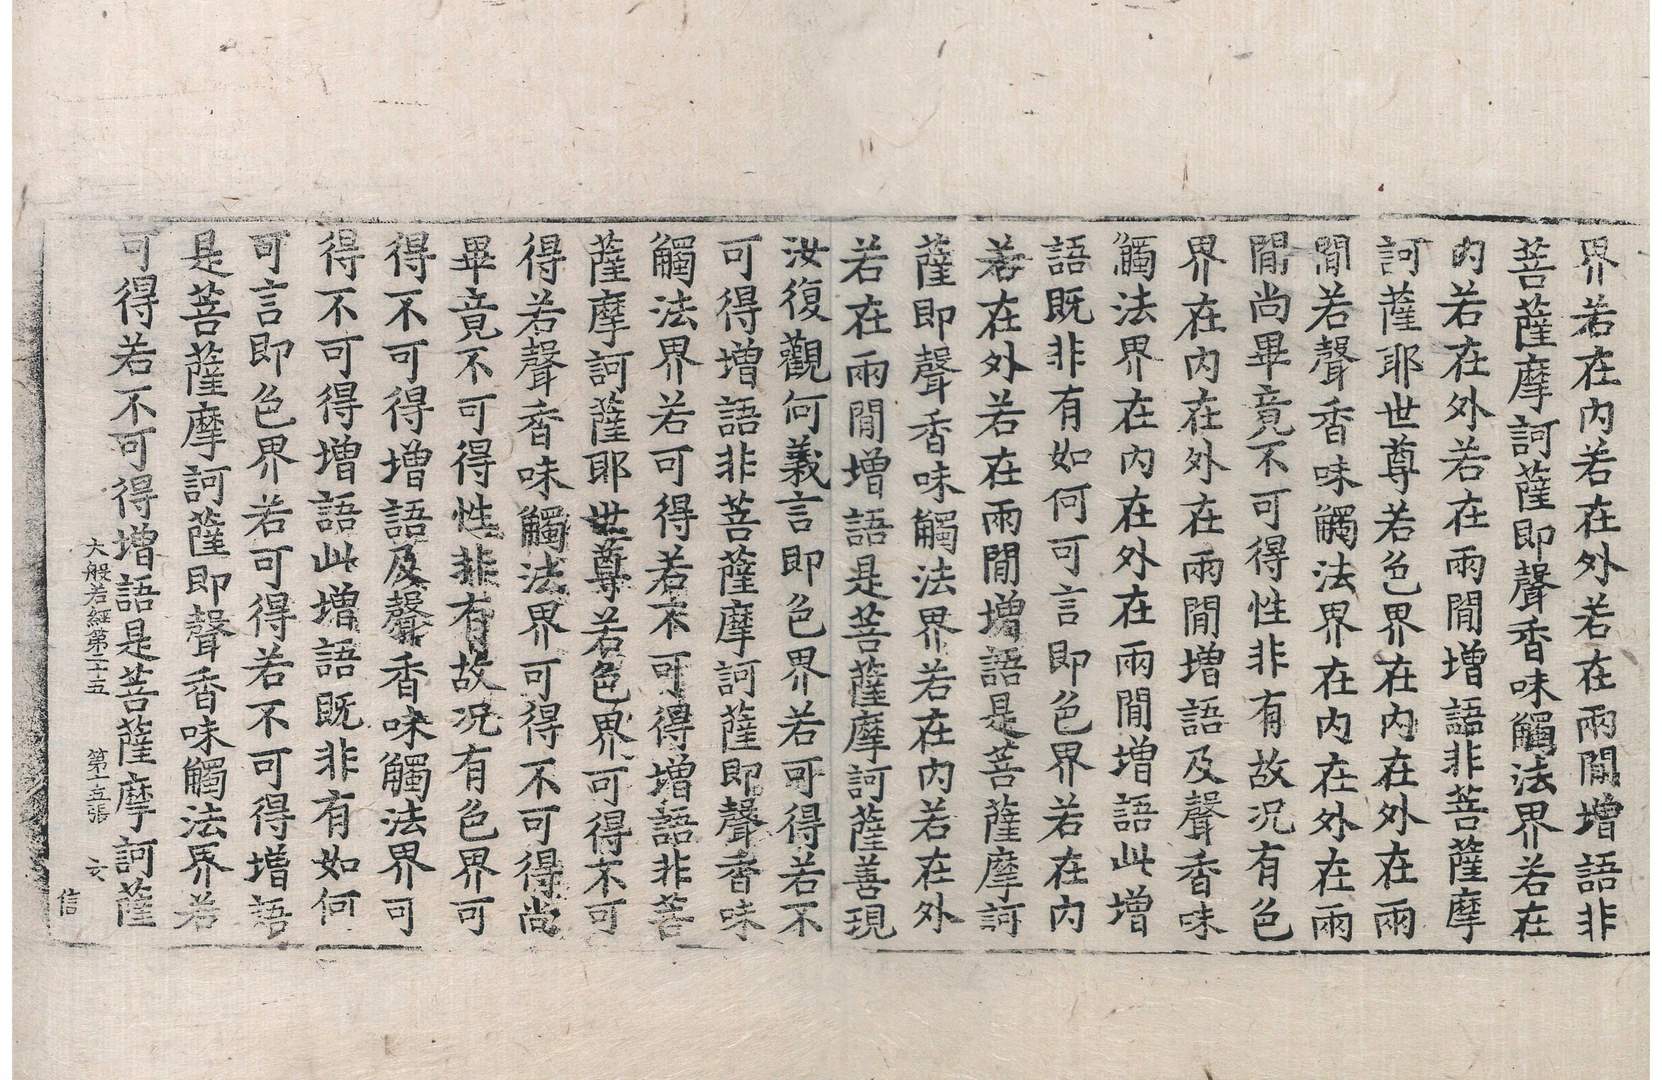 界若在內若在外若在兩閒增語非
菩薩摩訶薩即聲香味觸法界若在
內若在外若在兩閒增語非菩薩摩
訶薩耶世尊若色界在內在外在兩
閒若聲香味觸法界在內在外在兩
閒尚畢竟不可得性非有故况有色
界在內在外在兩閒增語及聲香味
觸法界在內在外在兩閒增語此增
語既非有如何可言即色界若在內
若在外若在兩閒增語是菩薩摩訶
薩即聲香味觸法界若在內若在外
若在兩閒增語是菩薩摩訶薩善現
汝復觀何義言即色界若可得若不
可得增語非菩薩摩訶薩即聲香味
觸法界若可得若不可得增語非菩
薩摩訶薩耶世尊若色界可得不可
得若聲香味觸法界可得不可得尚
畢竟不可得性非有故况有色界可
得不可得增語及聲香味觸法界可
得不可得增語此增語既非有如何
可言即色界若可得若不可得增語
是菩薩摩訶薩即聲香味觸法界若
可得若不可得增語是菩薩摩訶薩
大般若經第二十五 第十五張
信